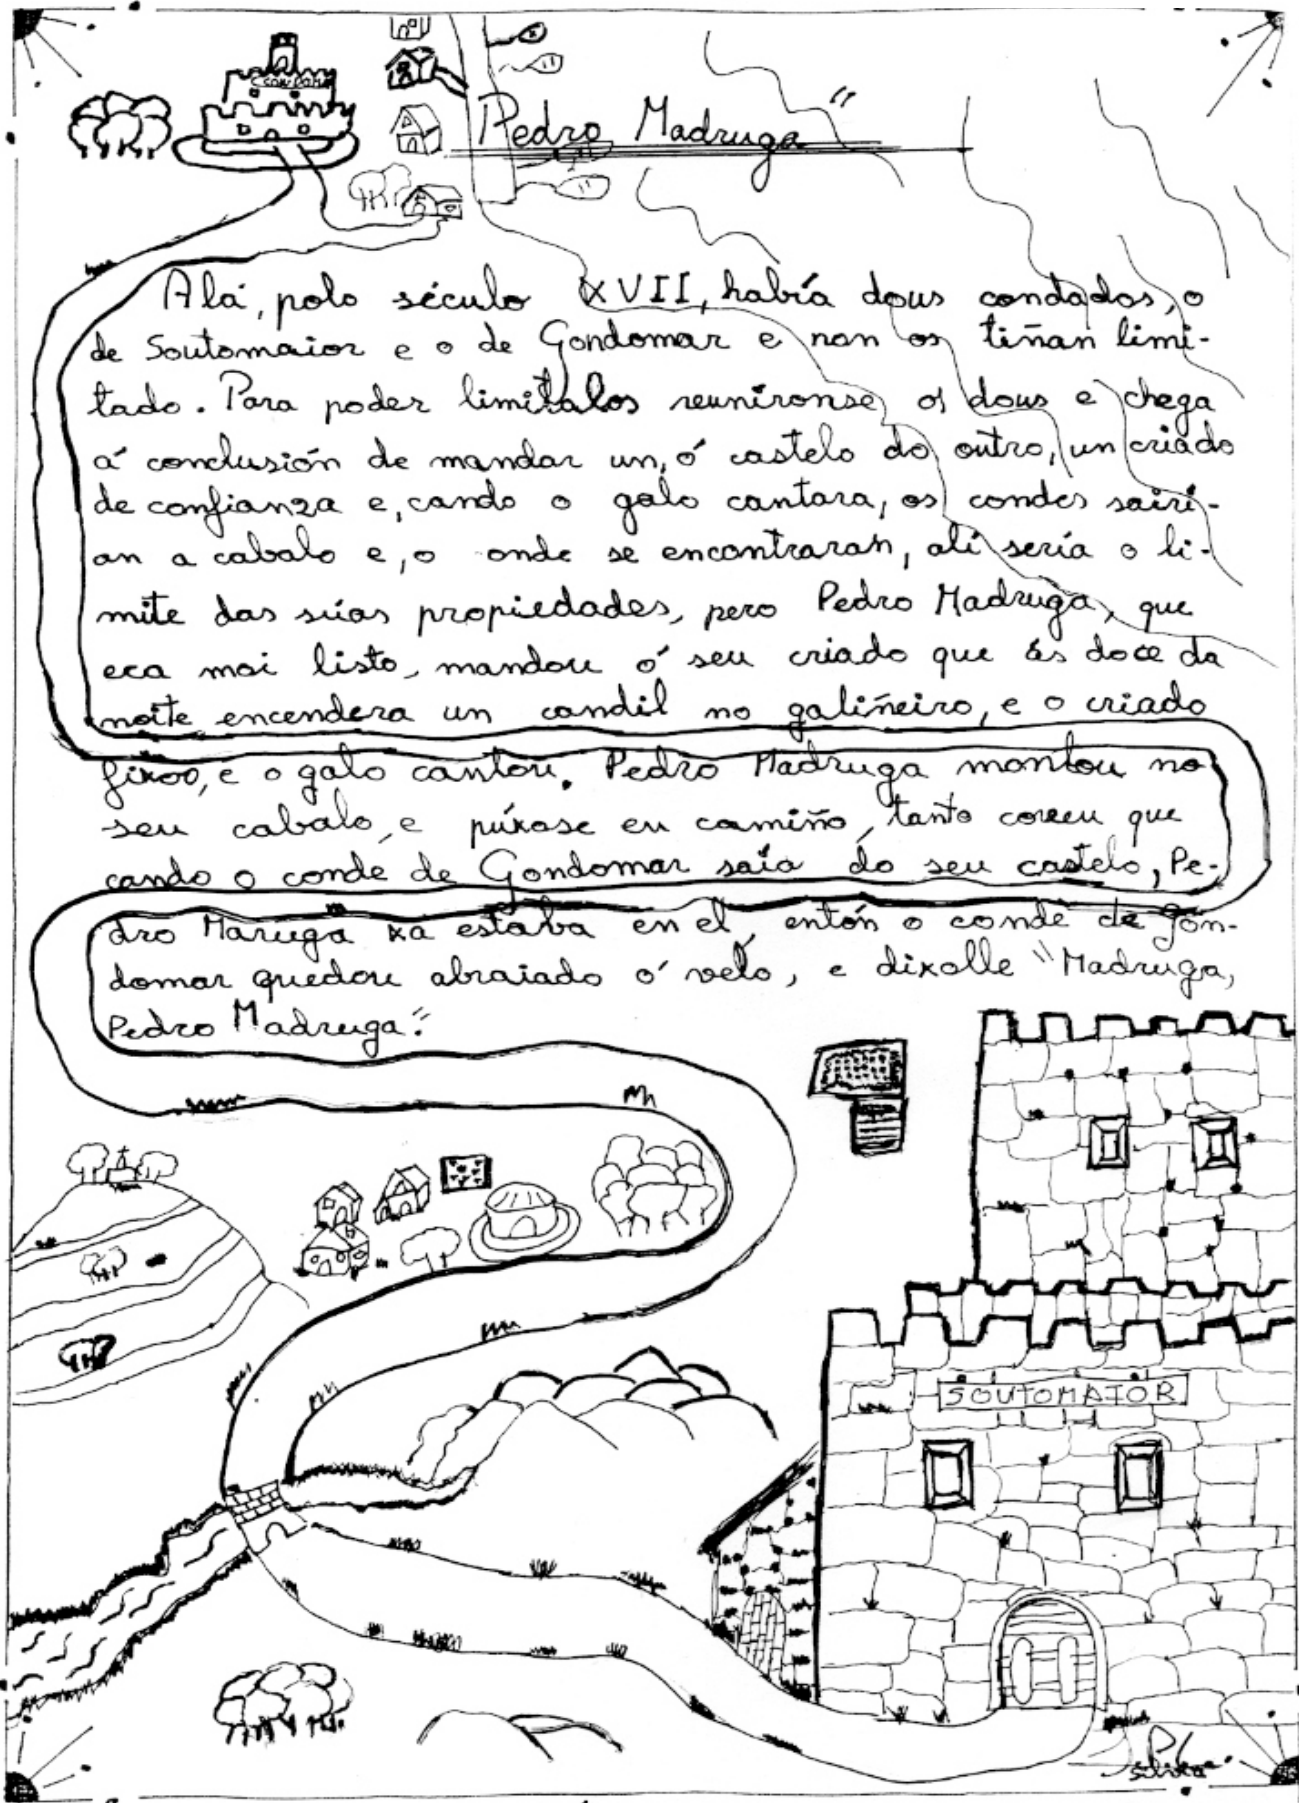 GONDOMAR
Pedro Madruga"
Alá, polo século XVII, había dous condados, o
de Soutomaior e o de Gondomar e non os tiñan limi-
tado. Para poder limitalos reuníronse os dous e chega
á conclusión de mandar un, ó castelo do outro, un criado
de confianza e, cando o galo cantara, os condes sairí-
an a cabalo e, o onde se encontraran, alí sería o li-
mite das súas propiedades, pero Pedro Madruga, que
era moi listo, mandou ó seu criado que ás doce da
noite encendera un candil no galiñeiro, e o criado
fixoo, e o galo cantou. Pedro Madruga montou no
seu cabalo, e púxose en camiño, tanto correu que
cando o conde de Gondomar saía do seu castelo, Pe-
dro Maruga xa estaba en el, entón o conde de Gon-
domar quedou abraiado ó velo, e dixolle "Madruga,
Pedro Madruga."
SOUTOMAIOR